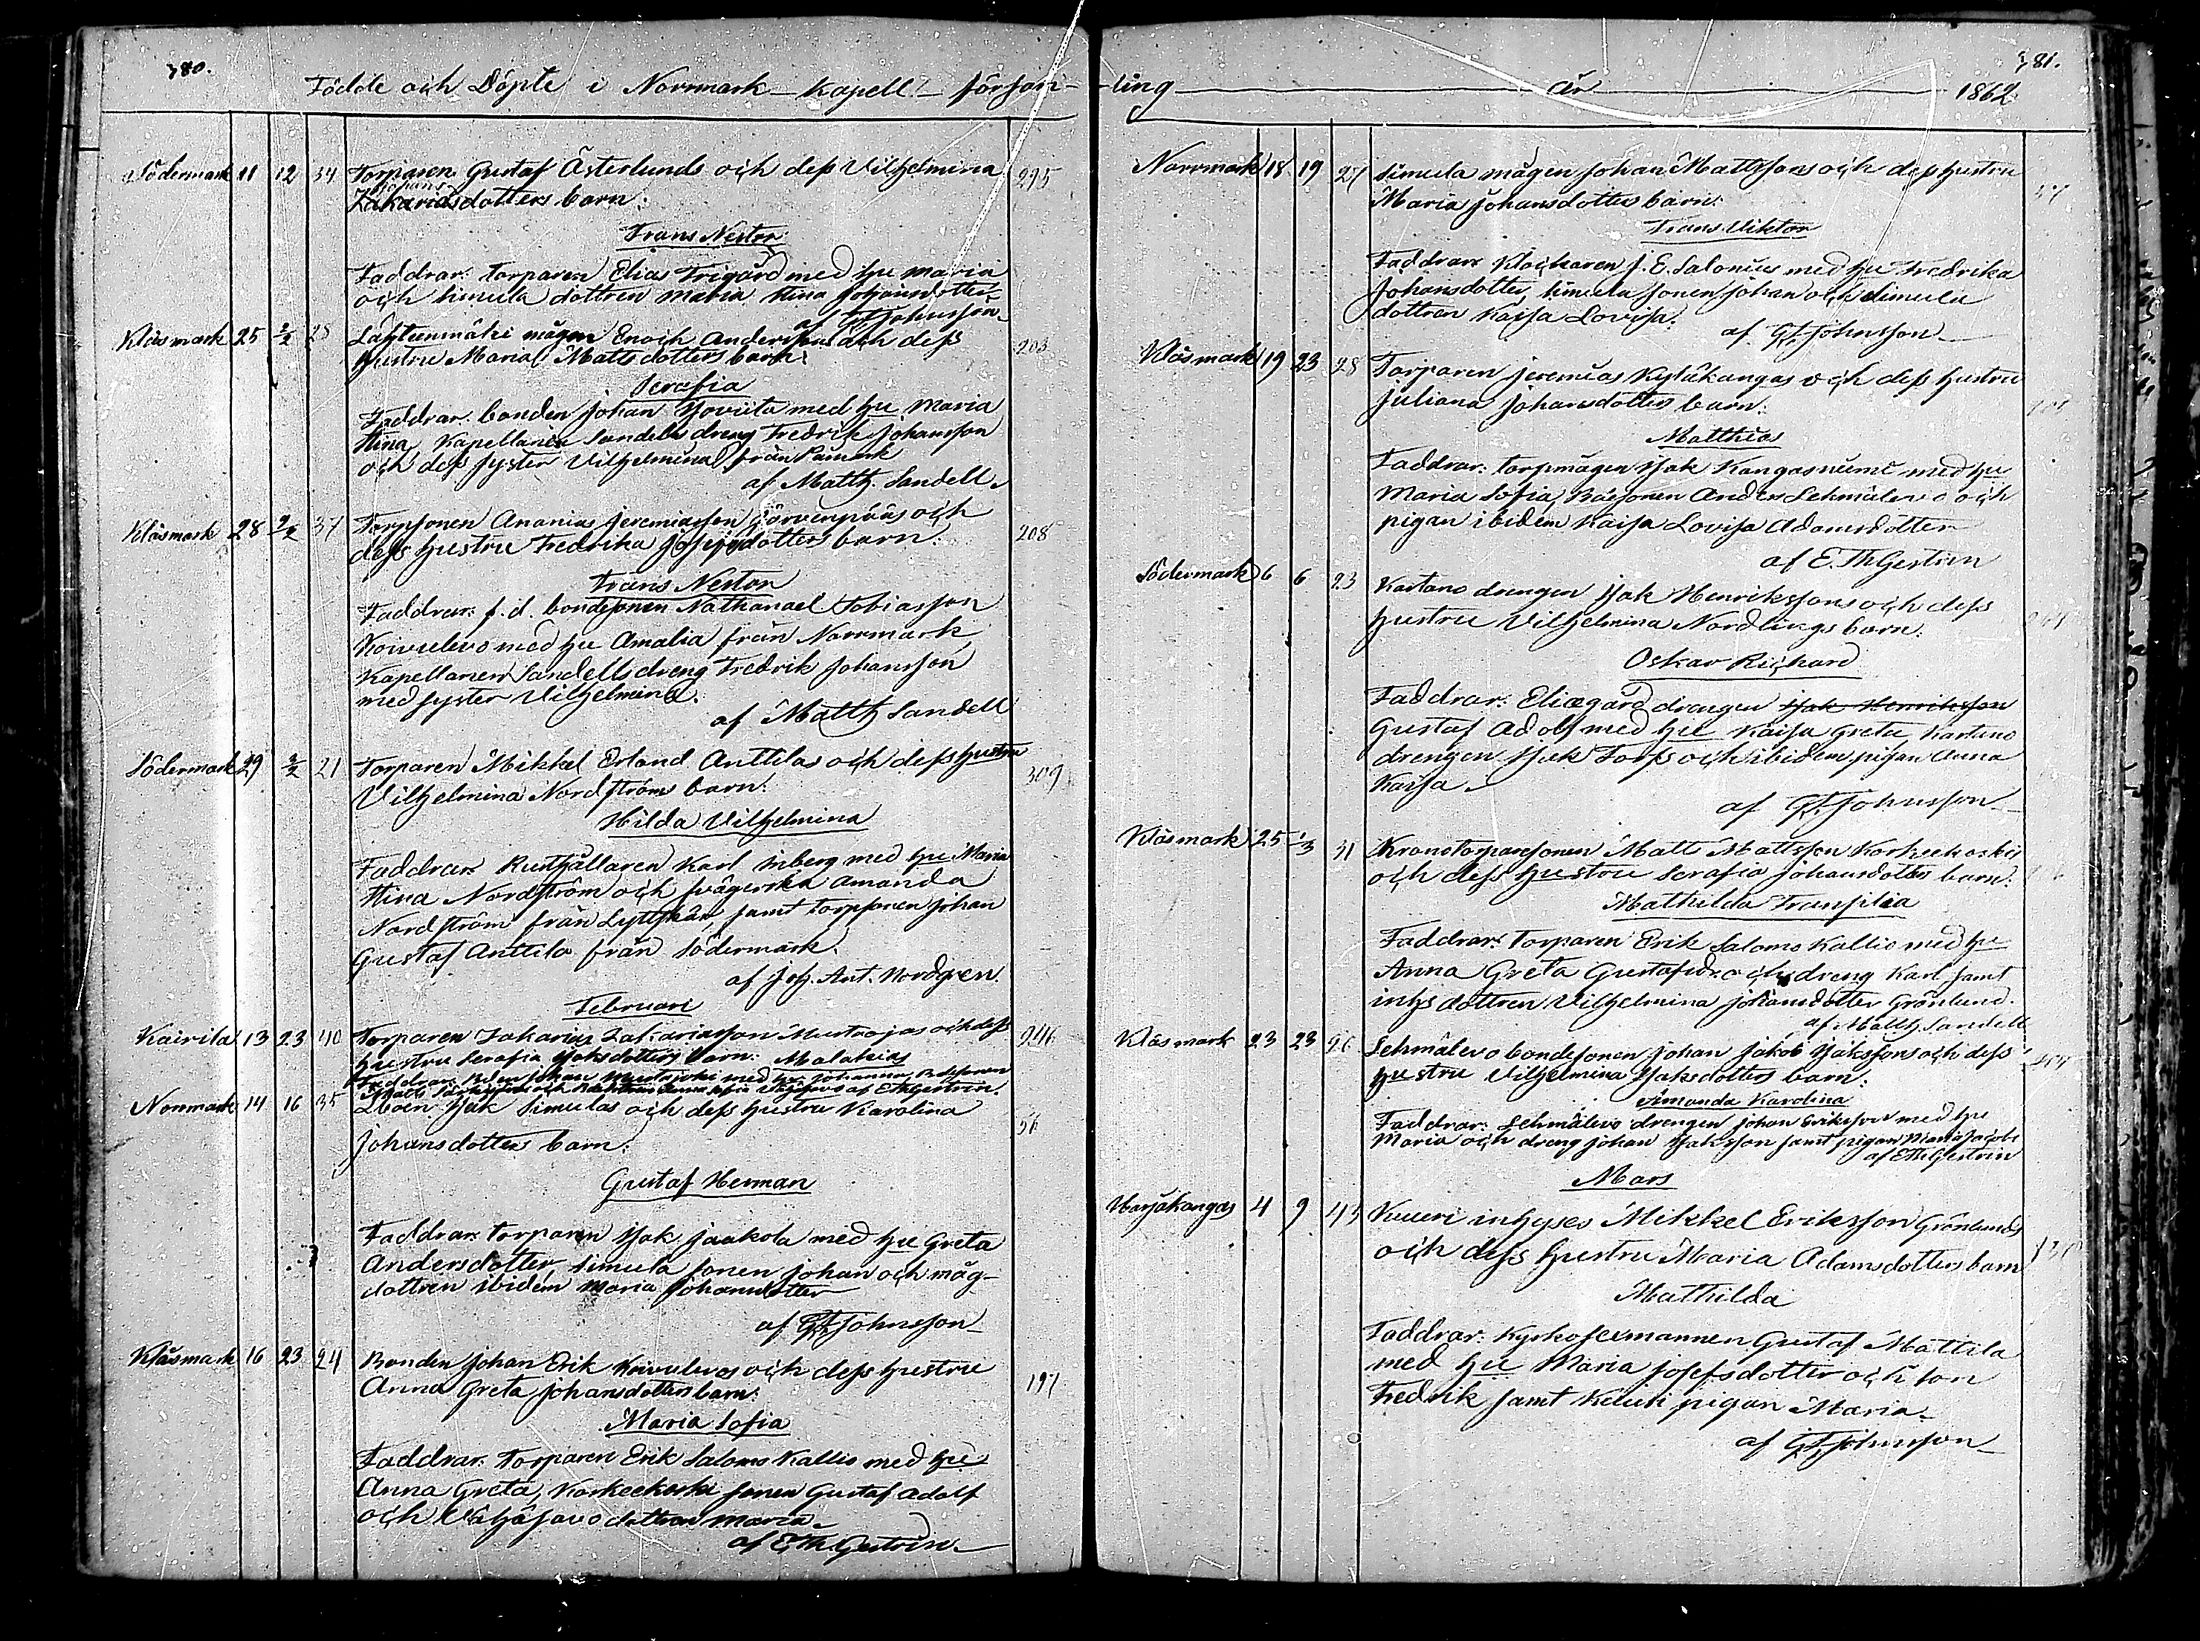 380.
Födde och Döpte i Norrmark kapell-försam-
Södermark 11 12 34 Torparen Gustaf Österlunds och dess Vilhelmina 295
Zakariasdotters barn:
Frans Nestor
Faddrar: torparen Elias Frigård med hu Maria
och Simula dottren Maria Stina Johansdotter
af G Johnsson
Klåsmark 25 2/2 28 Lähteenmäki mågen Enoch Anderssons och dess 203
hustru Maria Mattsdotters barn:
Serafia
Faddrar: bonden Johan Yoviita med hu Maria
Stina, Kapellanien Sandells dreng Fredrik Johansson
och dess syster Vilhelmina från Påmark
af Matth Sandell
Klåsmark 28 2/2 37 Torpsonen Ananias Jeremiasson Jörvenpääs och 208
dess hustru Fredrika Josepsdotters barn:
Frans Nestor
Faddrar: f. d. bondesonen Nathanael Tobiasson
Koivulevo med hu Amalia från Norrmark,
Kapellanien Sandells dreng Fredrik Johansson
med syster Vilhelmina.
af Matth Sandell
Södermark 29 2/2 21 Torparen Mikkel Erland Anttilas och dess hustru 309
Vilhelmina Nordström barn:
Hilda Vilhelmina
Faddrar: Rusthållaren Karl Inberg med hu Maria
Stina Nordström och svägerska Amanda
Nordström från Lyttskär, samt torpsonen Johan
Gustaf Anttila från Södermark.
af Joh. Ant. Nordgren.
Februari
Kairila 13 23 40 Torparen Zakarias Zakariasson Mustaojas och dess 246
hustru Serafia Isaksdotters barn: Malakias
Faddrar: Johan med hu Johanna, Bdesonen
af E Th Gestrin.
Norrmark 14 16 35 Isak Simulas och dess hustru Karolina 56
Johansdotters barn:
Gustaf Herman
Faddrar: torparen Isak Jaakola med hu Greta
Andersdotter, Simula sonen Johan och måg-
dottren ibidem Maria Johansdotter
af G Johnsson
Klåsmark 16 23 24 Bonden Johan Erik Koivulevos och dess hustru 197
Anna Greta Johansdotters barn:
Maria Sofia
Faddrar: Torparen Erik Salomo Kallio med hu
Anna Greta, Korkeekoski sonen Gustaf Adolf
och Vähäsavo dottren Maria
af E Th Gestrin
381.
-ling år 1862.
Norrmark 18 19 27 Simula mågen Johan Mattssons och dess hustru 57
Maria Johansdotters barn:
Frans Viktor
Faddrar: Klockaren J. E. Salonius med hu Fredrika
Johansdotter, Simula sonen Johan och Simula
dottren Kaisa Lovisa.
af G Johnsson
Klåsmark 19 23 28 Torparen Jeremias Kyläkangas och dess hustru
Juliana Johansdotters barn:
Matthias
Faddrar: torpmågen Isak Kangasniemi med hu
Maria Sofia, Bdesonen Anders Lehmälevo och
pigan ibidem Kaisa Lovisa Adamsdotter
af E. Th Gestrin
Södermark 6 6 23 Kartano drengen Isak Henrikssons och dess
hustru Vilhelmina Nordlings barn:
Oskar Richard
Faddrar: Eliægård drengen Isak Henriksson
Gustaf Adolf med hu Kaisa Greta, Kartano
drengen Isak Torp och ibidem pigan Anna
Kaisa.
af G Johnsson
Klåsmark 25 1/3 31 Kronotorparesonen Matts Mattsson Korkeekoskis
och dess hustru Serafia Johansdotters barn:
Mathilda Fransilia
Faddrar: Torparen Erik Salomo Kallio med hu
Anna Greta Gustafsdr. och dreng Karl, samt
inhs dottren Vilhelmina Johansdotter Grönlund.
af Matth Sandell
Klåsmark 23 23 26 Lehmälevo bondesonen Johan Jakob Isakssons och dess 204
hustru Vilhelmina Isaksdotters barn:
Amanda Karolina
Faddrar: Lehmälevo drengen Johan Eriksson med hu
Maria och dreng Johan Isaksson samt pigan Maria Jacobs
af E Th Gestrin
Mars
Harjakangas 4 9 43 Kuueri inhyses Mikkel Eriksson Grönlunds
och dess hustru Maria Adamsdotters barn
Mathilda
Faddrar: Kyrkosexmannen Gustaf Mattila
med hu Maria Josefsdotter och son
Fredrik samt pigan Maria
af G Johnsson